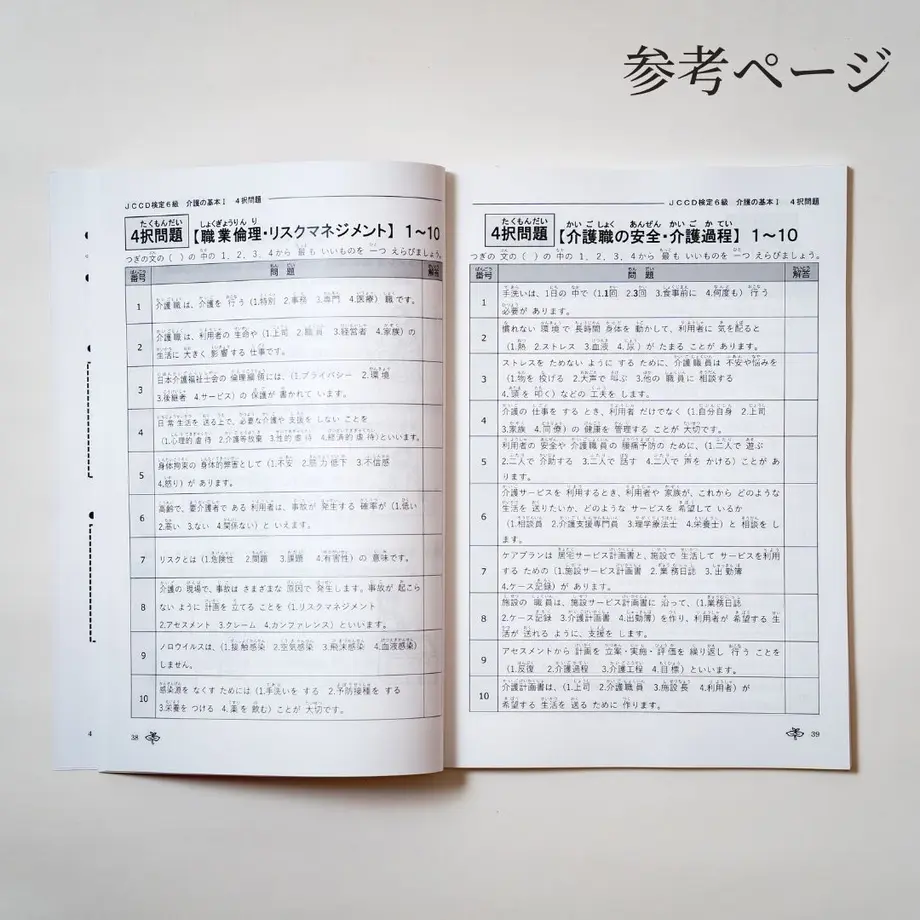 参考ページ
JCCD検定6級 介護の基本Ⅰ 4択問題
たくもんだい しょくぎょうりんり
4択問題 【職業倫理・リスクマネジメント】 1〜10
つぎの文の ( ) の 中の 1、2、3、4から 最も いいものを 一つ えらびましょう。
番号 問題 解答
1 介護職は、介護を 行う (1.特別 2.事務 3.専門 4.医療) 職です。
2 介護職は、利用者の 生命や (1.上司 2.職員 3.経営者 4.家族) の
生活に 大きく 影響する 仕事です。
3 日本介護福祉士会の 倫理綱領には、(1.プライバシー 2.環境
3.後継者 4.サービス) の 保護が 書かれて います。
4 日常生活を 送る上で、必要な介護や 支援を しない ことを
(1.心理的虐待 2.介護等放棄 3.性的虐待 4.経済的虐待)といいます。
5 身体拘束の 身体的弊害として (1.不安 2.筋力低下 3.不信感
4.怒り) が あります。
6 高齢で、要介護者で ある 利用者は、事故が 発生する 確率が (1.低い
2.高い 3.ない 4.関係ない) と いえます。
7 リスクとは (1.危険性 2.問題 3.課題 4.有害性) の 意味です。
8 介護の 現場で、事故は さまざまな 原因で 発生します。事故が 起こら
ない ように 計画を 立てる ことを (1.リスクマネジメント
2.アセスメント 3.クレーム 4.カンファレンス) といいます。
9 ノロウイルスは、(1.接触感染 2.空気感染 3.飛沫感染 4.血液感染)
しません。
10 感染源を なくす ためには (1.手洗いを する 2.予防接種を する
3.栄養を つける 4.薬を 飲む) ことが 大切です。
4
38
JCCD検定6級 介護の基本Ⅰ 4択問題
たくもんだい かいごしょく あんぜん かいごかてい
4択問題 【介護職の安全・介護過程】 1〜10
つぎの 文の ( ) の 中の 1、2、3、4から 最も いいものを 一つ えらびましょう。
番号 問題 解答
1 手洗いは、1日の 中で (1.1回 2.3回 3.食事前に 4.何度も) 行う
必要が あります。
2 慣れない 環境で 長時間 身体を 動かして、利用者に 気を配ると
(1.熱 2.ストレス 3.血液 4.尿) が たまる ことが あります。
3 ストレスを ためない ように する ために、介護職員は 不安や悩みを
(1.物を 投げる 2.大声で 叫ぶ 3.他の 職員に 相談する
4.頭を 叩く) などの 工夫を します。
4 介護の 仕事を する とき、利用者 だけでなく (1.自分自身 2.上司
3.家族 4.同僚) の 健康を 管理する ことが 大切です。
5 利用者の 安全や 介護職員の 腰痛予防の ために、(1.二人で 遊ぶ
2.二人で 介助する 3.二人で 話す 4.二人で 声を かける) ことが あ
ります。
6 介護サービスを 利用するとき、利用者や 家族が、これから どのような
生活を 送りたいか、どのような サービスを 希望して いるか
(1.相談員 2.介護支援専門員 3.理学療法士 4.栄養士) と 相談を し
ます。
7 ケアプランは 居宅サービス計画書と、施設で 生活して サービスを利用
する ための (1.施設サービス計画書 2.業務日誌 3.出勤簿
4.ケース記録) が あります。
8 施設の 職員は、施設サービス計画書に 沿って、(1.業務日誌
2.ケース記録 3.介護計画書 4.出勤簿) を作り、利用者が 希望する 生
活が 送れる ように、支援を します。
9 アセスメントから 計画を 立案・実施・評価を 繰り返し 行う ことを
(1.反復 2.介護過程 3.介護工程 4.目標) といいます。
10 介護計画書は、(1.上司 2.介護職員 3.施設長 4.利用者) が
希望する 生活を 送る ために 作ります。
39